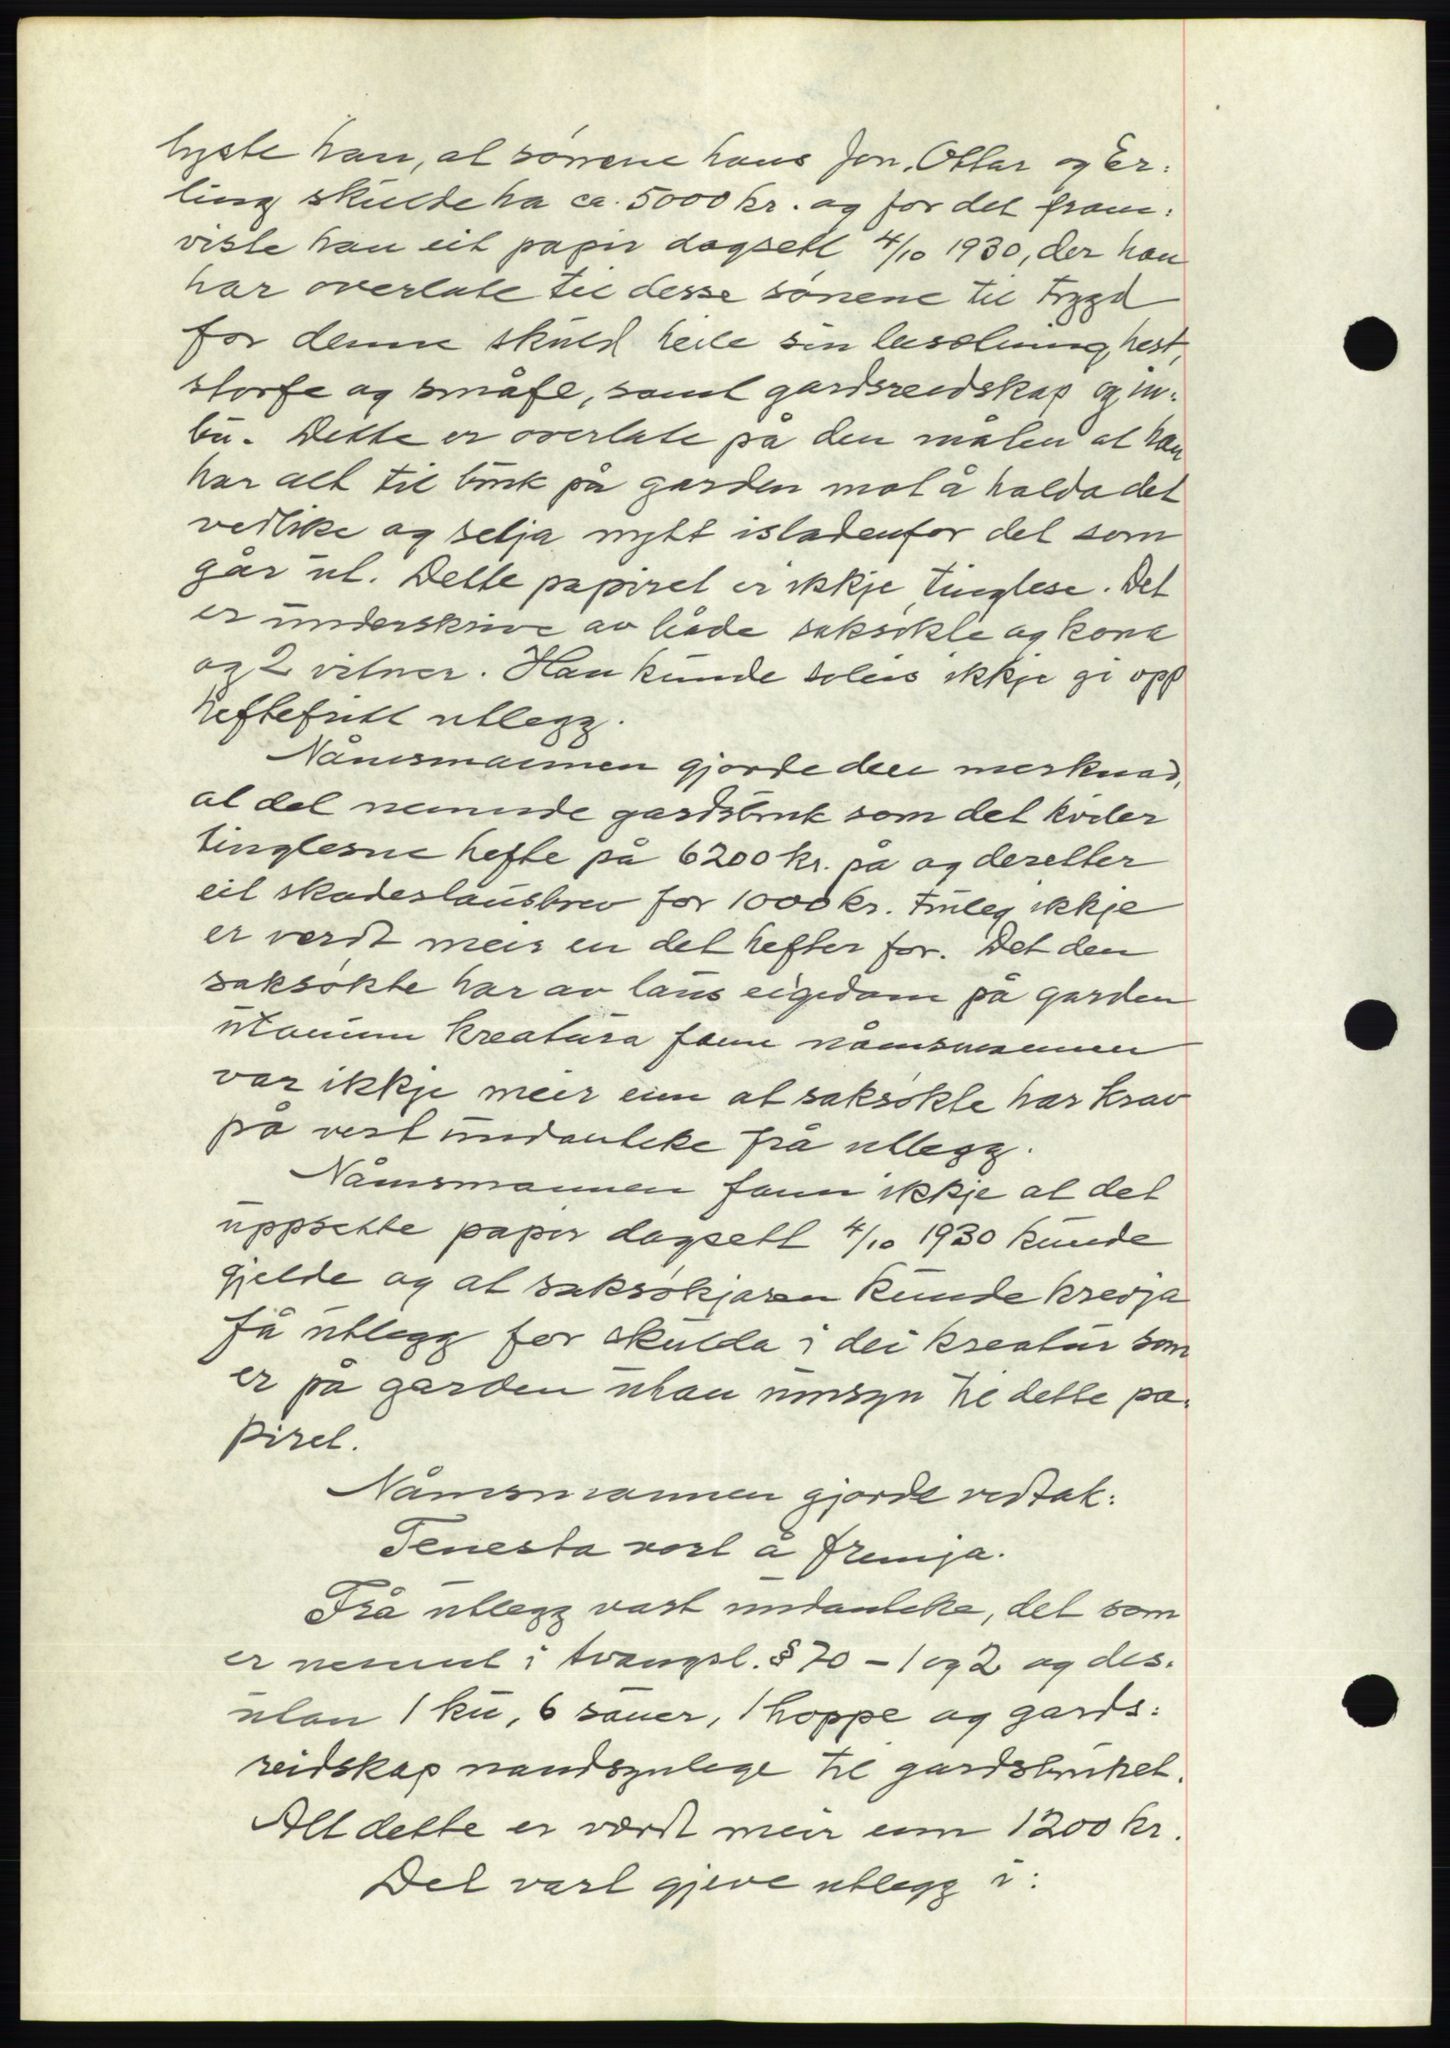 lyste han, at sønene hans Jon, Ottar og Er:
ling skulde ha ca. 5000 kr. og for det fram:
viste han eit papir dagsett 4/10 1930, der han
har overlate til desse sønene til trygd
for denne skuld heile sin buslning, hest,
storfe og småfe, samt gardsreidskap og in:
bu. Dette er overlate på den måten at han
har alt til bruk på garden mot å halda det
vedlike og setja nytt istadenfor det som
går ut. Dette papiret er ikkje tinglese. Det
er underskrive av både saksøkte og kona
og 2 vitner. Han kunde soleis ikkje gi opp
heftefritt utlegg.
Nåmsmannen gjorde den merknad,
at det nemnde gardsbruk som det kviler
tinglesne hefte på 6200 kr. på og deretter
eit skadeslausbrev for 1000 kr. truleg ikkje
er verdt meir en det hefter for. Det den
saksøkte har av laus eigedom på garden
utanum kreatura fann nåmsmannen
var ikkje meir enn at saksøkte har krav
på vert undanteke frå utlegg.
Nåmsmannen fann ikkje at det
uppsette papir dagsett 4/10 1930 kunde
gjelde og at saksøkjaren kunde krevja
få utlegg for skulda i dei kreatur som
er på garden utan umsyn til dette pa:
piret.
Nåmsmannen gjorde vedtak:
Tenesta vart å fremja.
Frå utlegg vart undanteke, det som
er nemnt i tvangsl. § 70 - 1 og 2 og des:
utan 1 ku, 6 sauer, 1 hoppe og gards:
reidskap naudsynlege til gardsbruket.
Alt dette er verdt meir enn 1200 kr.
Det vart gjeve utlegg i: